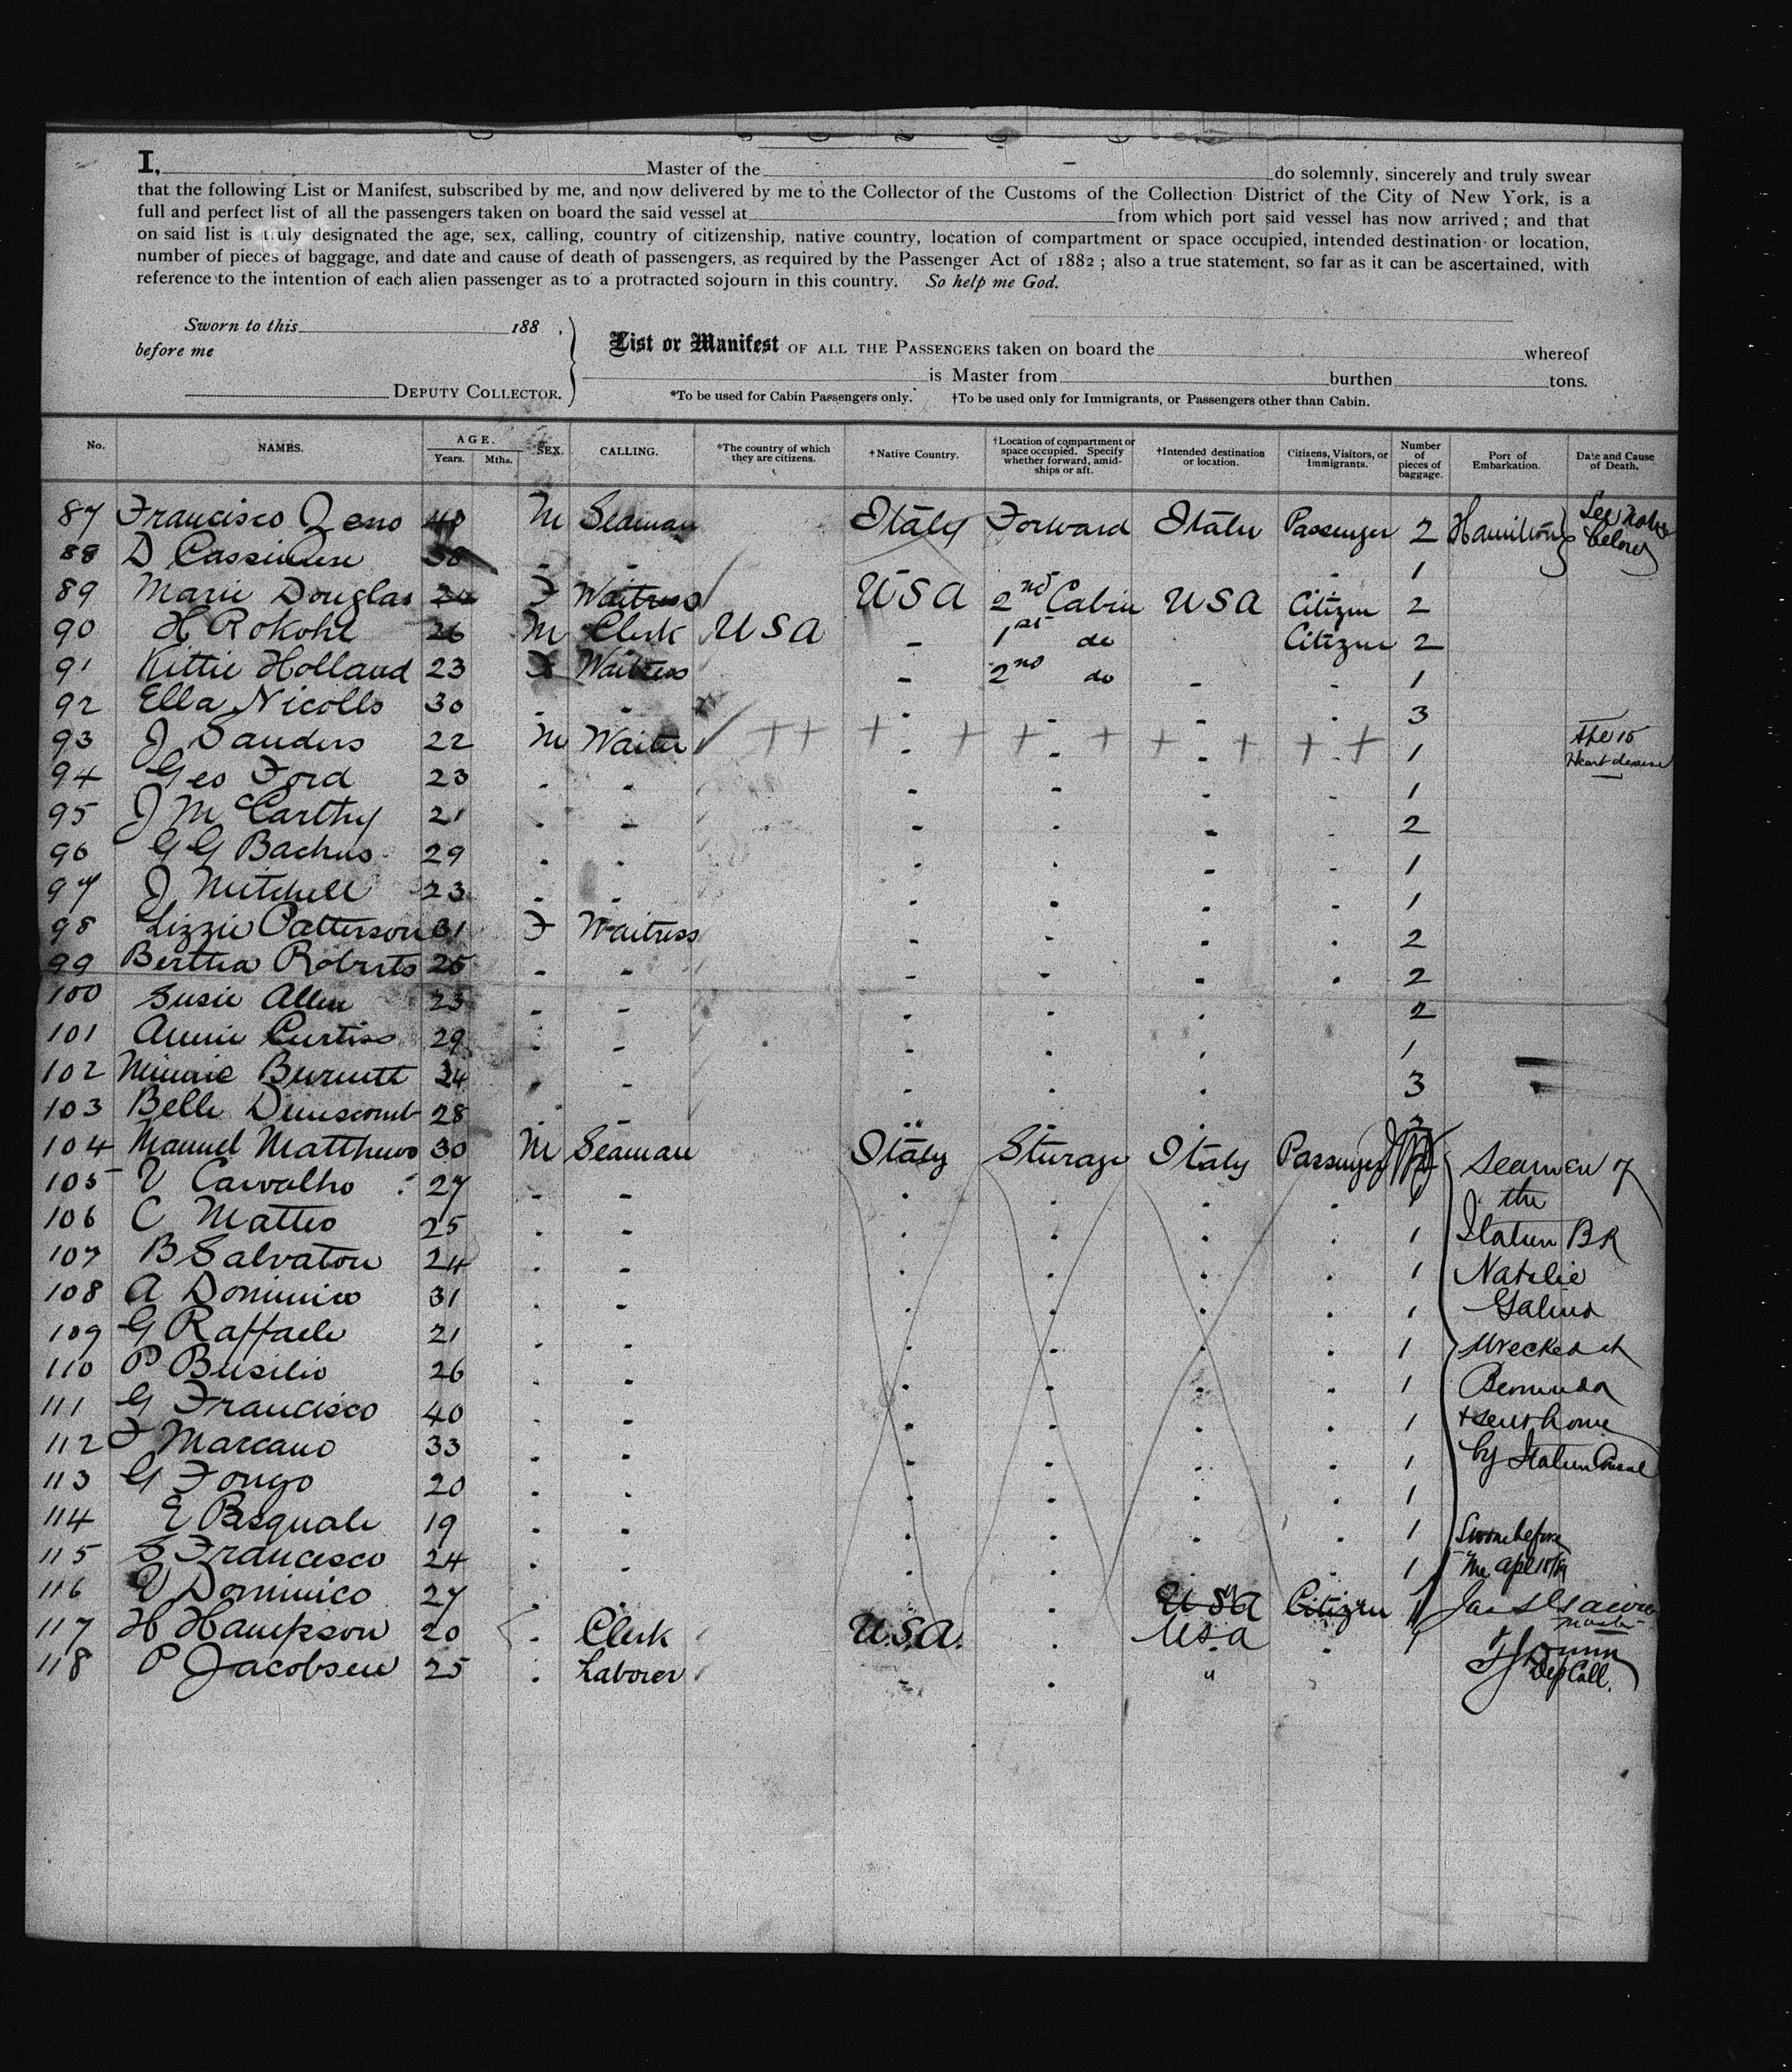 I, Master of the do solemnly, sincerely and truly swear
that the following List or Manifest, subscribed by me, and now delivered by me to the Collector of the Customs of the Collection District of the City of New York, is a
full and perfect list of all the passengers taken on board the said vessel at from which port said vessel has now arrived; and that
on said list is truly designated the age, sex, calling, country of citizenship, native country, location of compartment or space occupied, intended destination or location,
number of pieces of baggage, and date and cause of death of passengers, as required by the Passenger Act of 1882; also a true statement, so far as it can be ascertained, with
reference to the intention of each alien passenger as to a protracted sojourn in this country. So help me God.
Sworn to this 188 ,
before me
DEPUTY COLLECTOR.
List or Manifest OF ALL THE PASSENGERS taken on board the whereof
is Master from burthen tons.
*To be used for Cabin Passengers only. †To be used only for Immigrants, or Passengers other than Cabin.
No. NAMES. AGE. Years. Mths. SEX. CALLING. *The country of which they are citizens. †Native Country. †Location of compartment or space occupied. Specify whether forward, amidships or aft. †Intended destination or location. Citizens, Visitors, or Immigrants. Number of pieces of baggage. Port of Embarkation. Date and Cause of Death.
87 Francisco Zeno 40 M Seaman Italy Forward Italy Passenger 2 Hamilton See notes below
88 D 30 - - - 1
89 Marie Douglas 24 F Waitress USA 2nd Cabin USA Citizen 2
90 H Rokohl 26 M Clerk USA - 1st do Citizen 2
91 Kittie Holland 23 F Waitress - 2nd do - - 1
92 Ella Nicolls 30 - - - - - - 3
93 J Sanders 22 M Waiter - - - - 1 Apl 15 Heart disease
94 Geo Ford 23 - - - - - - 1
95 J McCarthy 21 - - - - - - 2
96 G G Bachus 29 - - - - - - 1
97 J Mitchell 23 - - - - - - 1
98 Lizzie Patterson 31 F Waitress - - - - 2
99 Bertha Roberts 25 - - - - - - 2
100 Susie Allen 23 - - - - 2
101 Annie Curtiss 29 - - - - - 1
102 Minnie Burnett 24 - - - - - 3
103 Belle Dunscomb 28 - - - - 3
104 Manuel Matthews 30 M Seaman Italy Sturage Italy Passenger Seamen of
105 V Carvalho 27 - - - - - - 1 the
106 C Matteo 25 - - - - - - 1 Italian BK
107 B Salvatore 24 - - - - - - 1 Natalie
108 A Dominico 31 - - - - - - 1 Galino
109 G Raffaele 21 - - - - - - 1 Wrecked at
110 P Busilio 26 - - - - - - 1 Bermuda
111 G Francisco 40 - - - - - - 1 + sent home
112 F Marcano 33 - - - - - - 1 by Italian Consul
113 G Fongo 20 - - - - - - 1
114 E Pasquale 19 - - - - - - 1 Sworn before
115 S Francesco 24 - - - - - - 1 me Apl 15/89
116 V Dominico 27 - - USA Citizen 1
117 H Hampson 20 - Clerk U.S.A. - USA - 1 Master
118 P Jacobsen 25 - Laborer - - " Dunn Dep Coll.